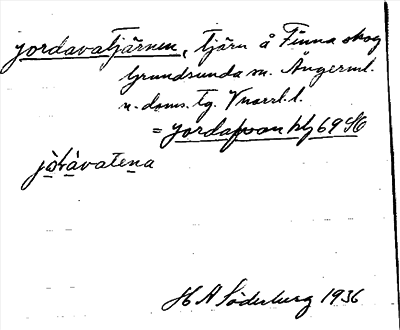 Jordavatjärnen, tjärn å Finna skog
Grundsunda sn. Ångerml.
n. doms. tg. Vnorrl. l.
= Jorda
jòtàvatena
H A Söderberg 1936